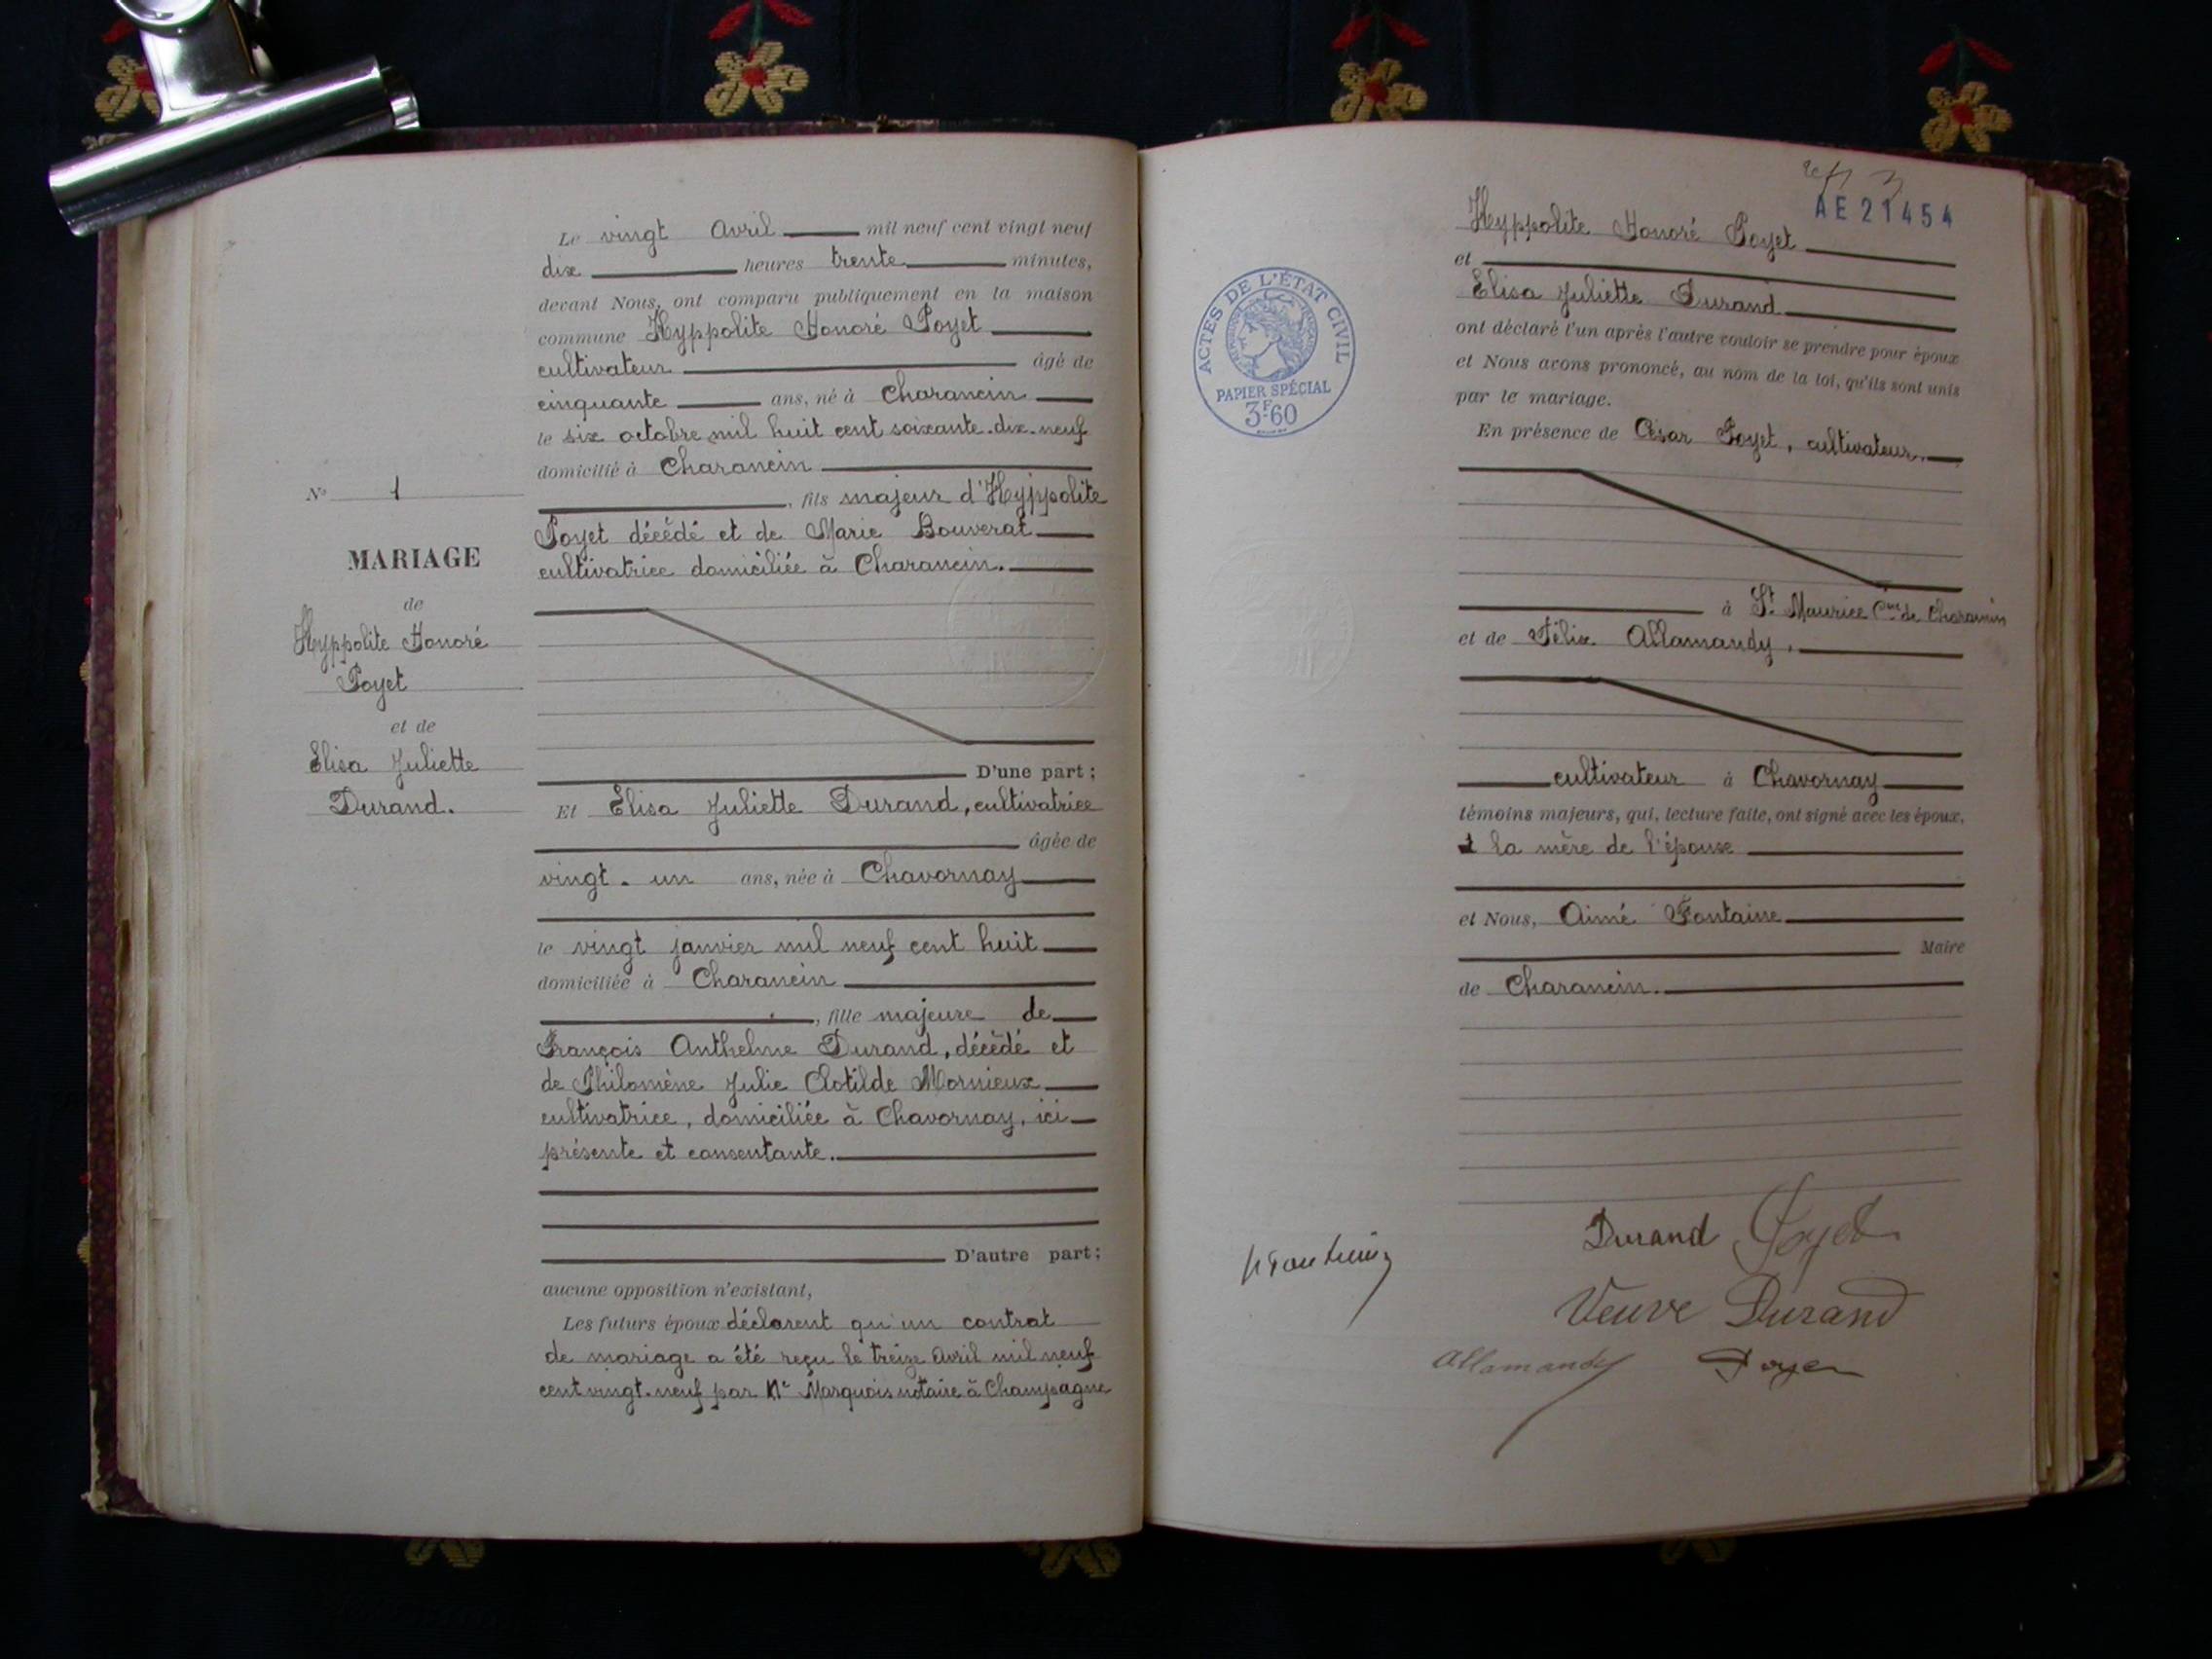 Le vingt Avril mil neuf cent vingt neuf
dix heures trente minutes,
devant Nous, ont comparu publiquement en la maison
commune Hyppolite Honoré Poyet
cultivateur âgé de
cinquante ans, né à Charancin
le six octobre mil huit cent soixante-dix-neuf
domicilié à Charancin
, fils majeur d'Hyppolite
Poyet décédé et de Marie Bouverat
cultivatrice domiciliée à Charancin.
D'une part;
Et Elisa Juliette Durand, cultivatrice
âgée de
vingt-un ans, née à Chavornay
le vingt janvier mil neuf cent huit
domiciliée à Charancin
, fille majeure de
François Anthelme Durand, décédé et
de Philomène Julie Clotilde Mornieux
cultivatrice, domiciliée à Chavornay, ici
présente et consentante.
D'autre part;
aucune opposition n'existant,
Les futurs époux déclarent qu'un contrat
de mariage a été reçu le treize Avril mil neuf
cent vingt-neuf par Me Marquois notaire à Champagne
No 1
MARIAGE
de
Hyppolite Honoré
Poyet
et de
Elisa Juliette
Durand.
AE 21454
Hyppolite Honoré Poyet
et
Elisa Juliette Durand
ont déclaré l'un après l'autre vouloir se prendre pour époux
et Nous avons prononcé, au nom de la loi, qu'ils sont unis
par le mariage.
En présence de César Poyet, cultivateur,
à St Maurice Cne de Charancin
et de Félix Allamandy,
cultivateur à Chavornay
témoins majeurs, qui, lecture faite, ont signé avec les époux,
et la mère de l'épouse
et Nous, Aimé Fontaine
Maire
de Charancin.
ACTES DE L'ÉTAT CIVIL
PAPIER SPÉCIAL
3F60
Durand Poyet
Fontaine
Veuve Durand
Allamandy Poyet